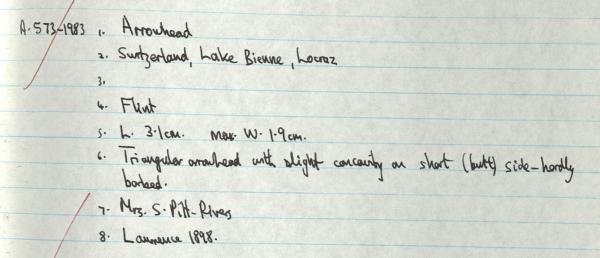 A.573-1983 1. Arrowhead
2. Switzerland, Lake Bienne, Locraz
3.
4. Flint
5. L. 3.1cm. max. W. 1.9cm.
6. Triangular arrowhead with slight concavity on short (butt) side-hardly
barbed.
7. Mrs. S. Pitt-Rivers
8. Lawrence 1898.